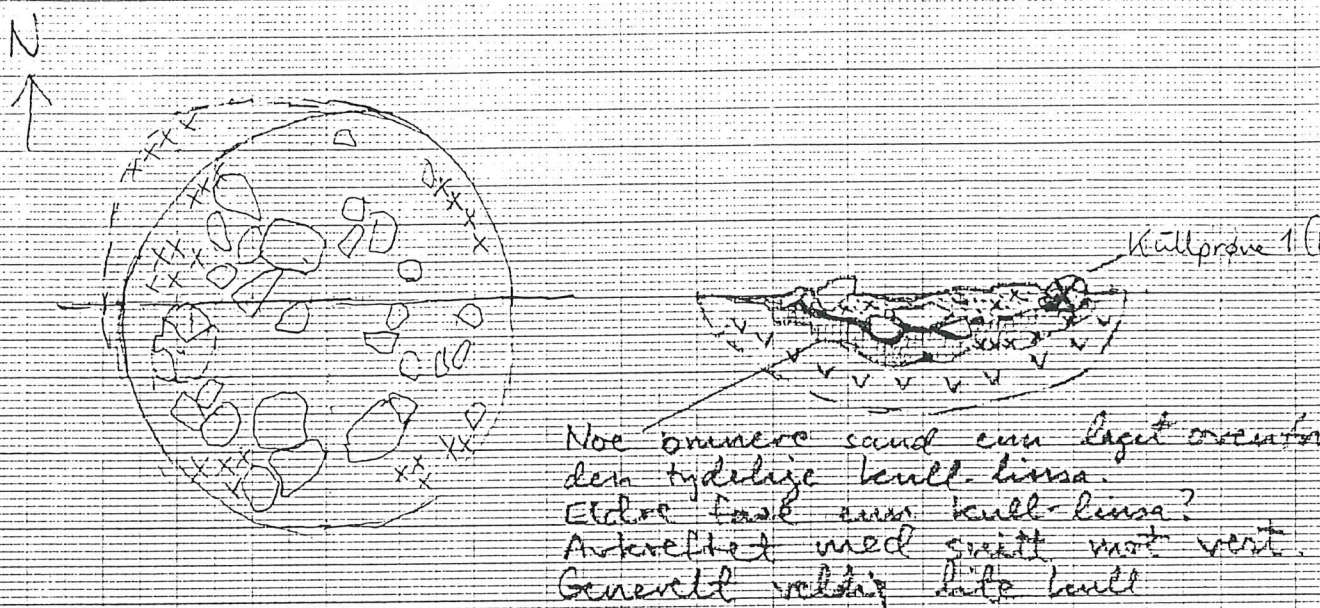 N
Kullprøve 1 (
Noe brunere sand enn laget ovenfor
den tydelige kull-linsa.
Eldre fase enn kull-linsa?
Avkreftet med snitt mot vest.
Generelt veldig lite kull